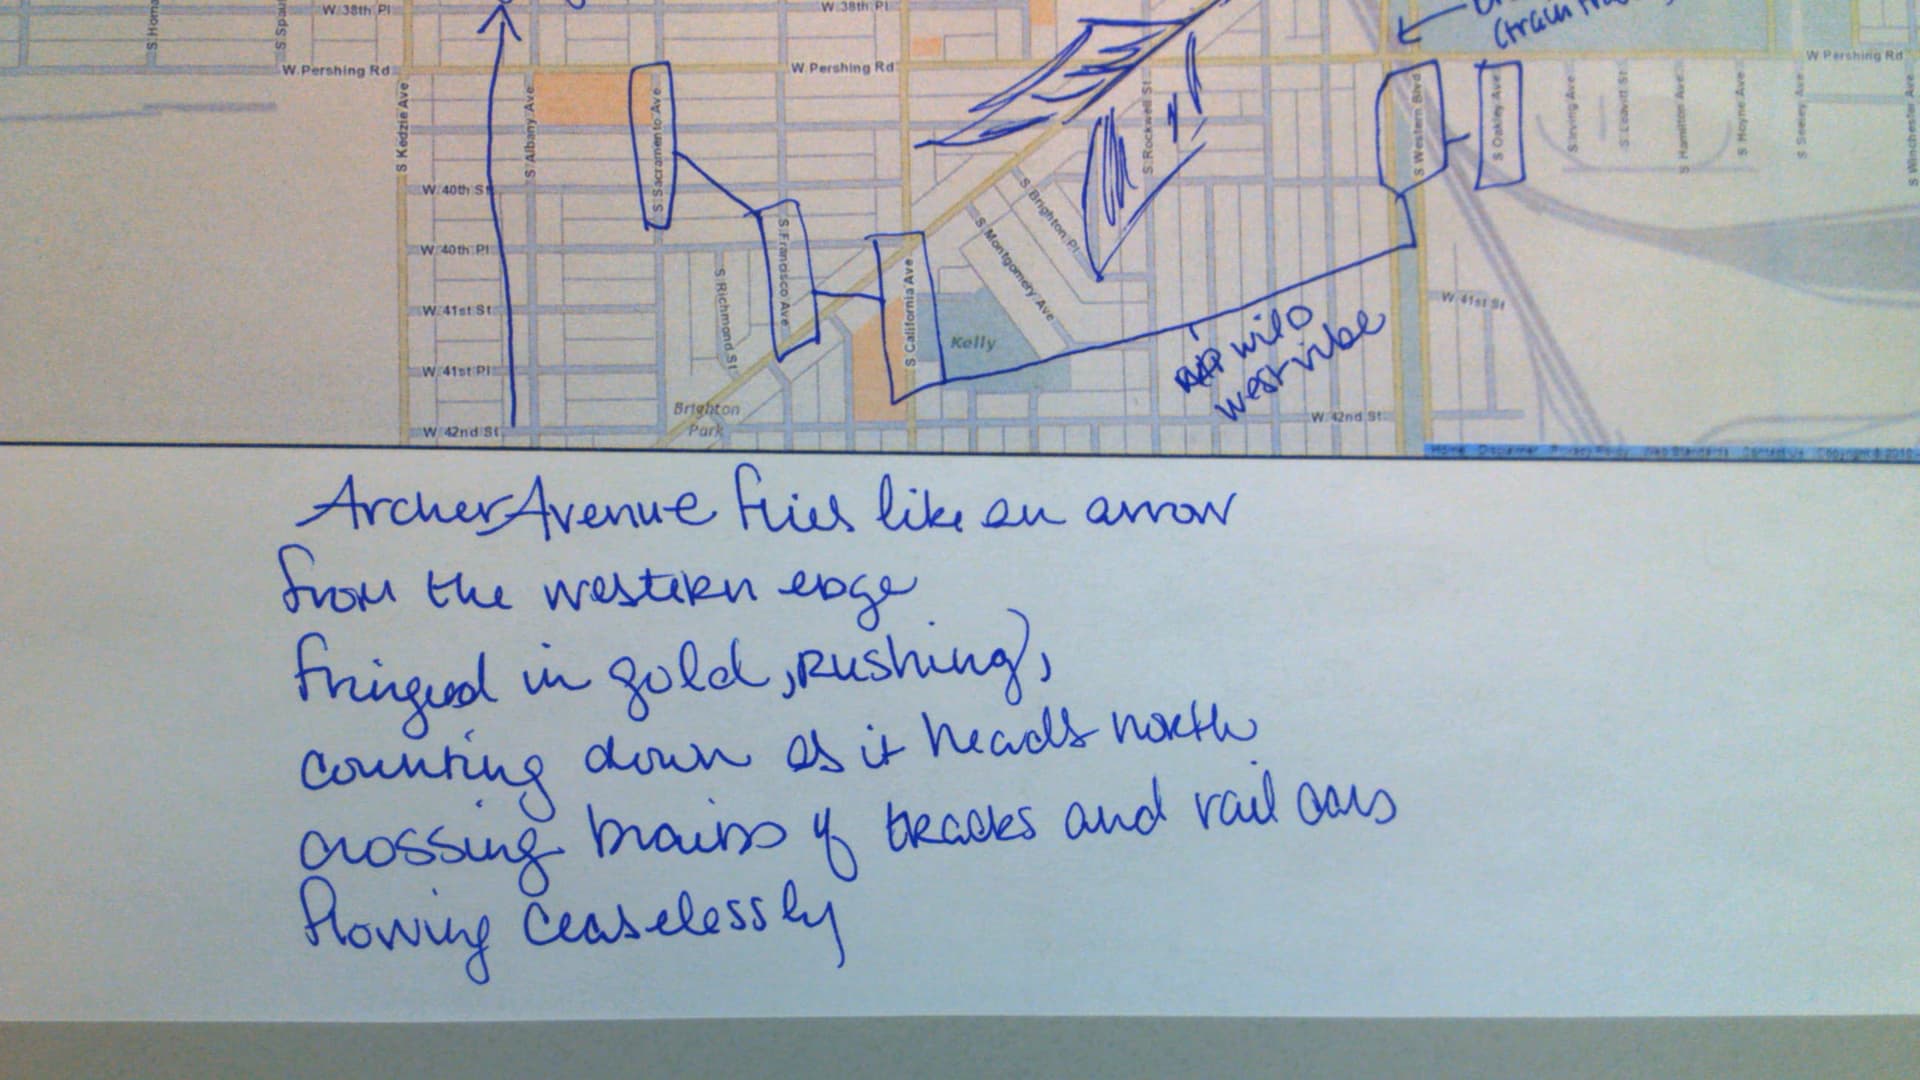 W 38th Pl
W 38th Pl
S Homa
S Spau
(train
W Pershing Rd
W Pershing Rd
W Pershing Rd
S Kedzie Ave
S Albany Ave
S Sacramento Ave
S Rockwell St
S Western Blvd
S Oakley Ave
S Irving Ave
S Leavitt St
S Hamilton Ave
S Hoyne Ave
S Seeley Ave
S Winchester Ave
W 40th St
S Brighton Pl
W 40th Pl
S Montgomery Ave
S Francisco Ave
S Richmond St
S California Ave
W 41st St
W 41st St
Kelly
wild
west vibe
W 41st Pl
Brighton
Park
W 42nd St
W 42nd St
Home Disclaimer Privacy Policy Web Standards Contact Us Copyright © 2010
Archer Avenue flies like an arrow
from the western edge
fringed in gold, rushing,
counting down as it heads north
crossing braids of tracks and rail cars
flowing ceaselessly